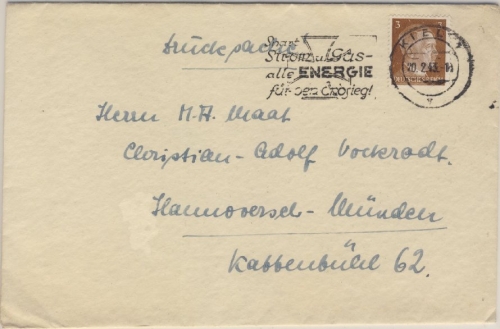 Drucksache
Spart
Strom u. Gas-
alle ENERGIE
für den Endsieg!
KIEL 1
20.2.43.-18
3
Herrn M.A. Maat
Christian-Adolf Vockrodt.
Hannoversch-Münden
Kattenbühl 62.